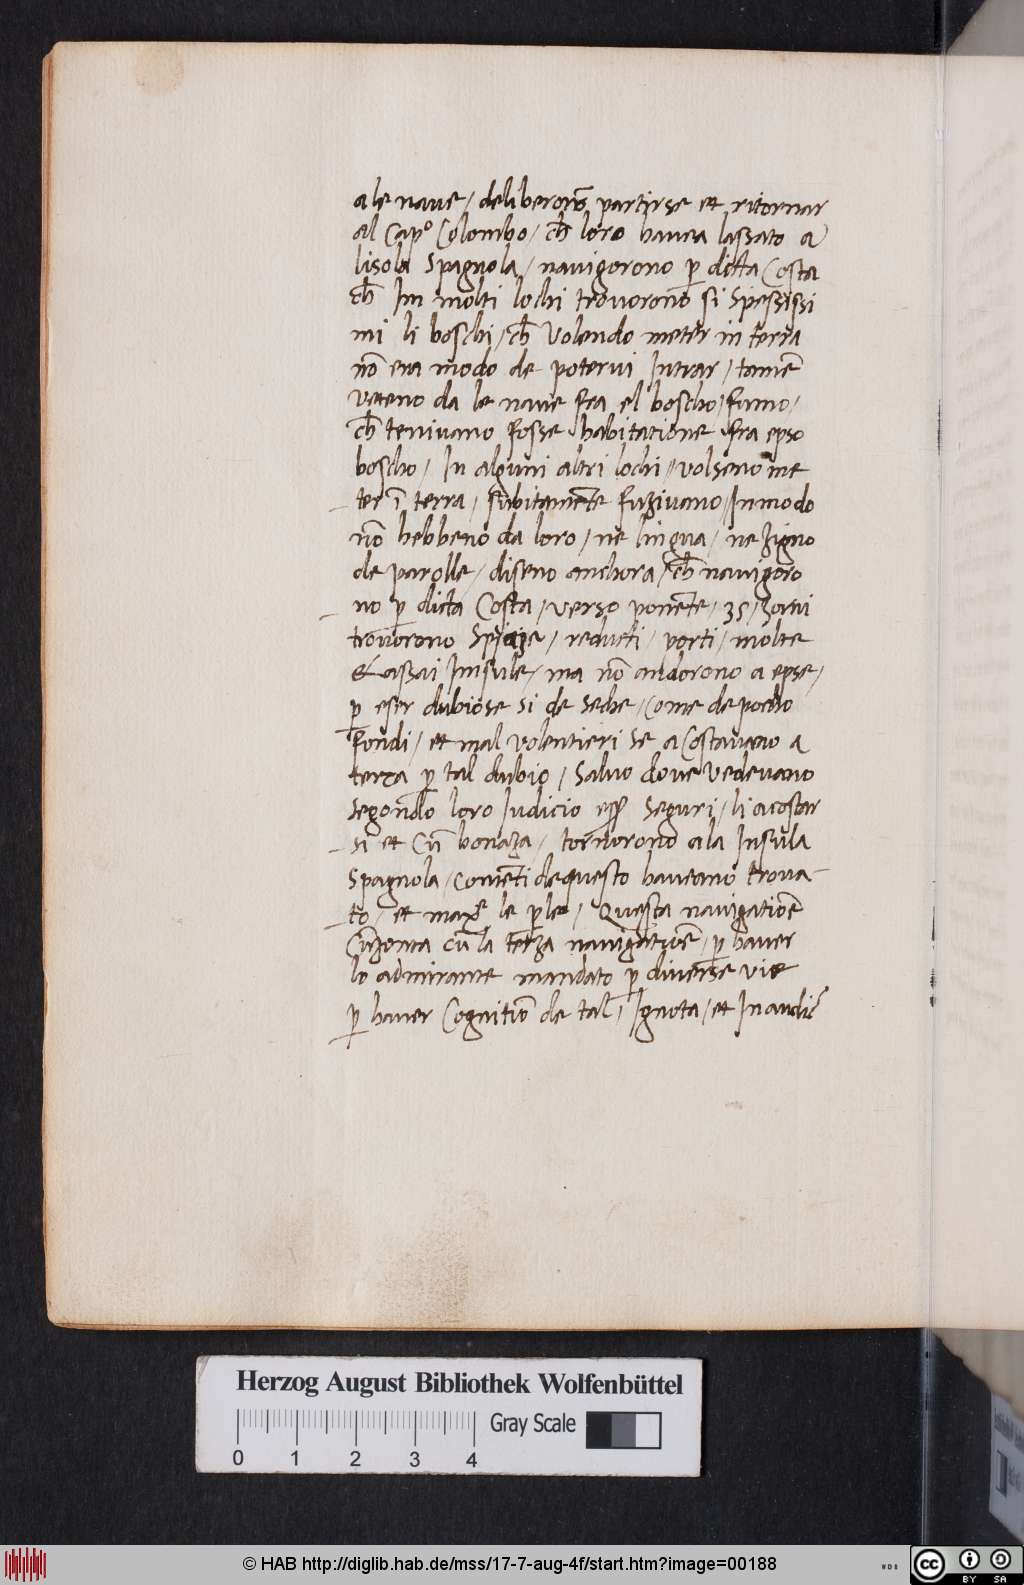 ale naue / deliberorō partirse et ritornar
al Capº Colombo / ch̄ loro hauea lassato a
lisola Spagnola / nauigorono p̱ dicta Costa
ch̄ Im molti lochi trouorono si Spessissi
mi li boschi / ch̄ Volendo meter in terra
nō era modo de poterui Intrar / tamē
veteno da le naue fra el boscho / fumo /
ch̄ teniuano fosse habitatione fra epso
boscho / In alguni altri lochi / volseno me
ter ī terra / subitamēte fuziuano / Inmodo
nō hebbeno da loro / ne lingua / ne zigno
de parolle / diseno anchora / ch̄ nauigoro
no p̱ dicta Costa / verso ponēte / 35 / zorni
trouorono Spiaje / reducti / porti / molte
& assai Insule / ma nō andorono a epse /
p̱ eser dubiose si de Seche / Come de pocho
fondi / et mal volentieri se acostauano a
terra p̱ tal dubio / Saluo doue vedeuano
Segondo loro Iudicio esser Seguri / li acostar
si et Cū bonaza / tornorono ala Insula
Spagnola / Contēti de questo haueano troua-
to / et max̄e le p̱le / Questa nauigatiōe
Cūzonta cū la terza nauigatiōe / p̱ hauer
lo admirante mandato p̱ diuerse vie
p̱ hauer Cognitiō de tal / Ignota / et Inaudi
Herzog August Bibliothek Wolfenbüttel
Gray Scale
0 1 2 3 4
© HAB http://diglib.hab.de/mss/17-7-aug-4f/start.htm?image=00188
WDB
CC BY SA